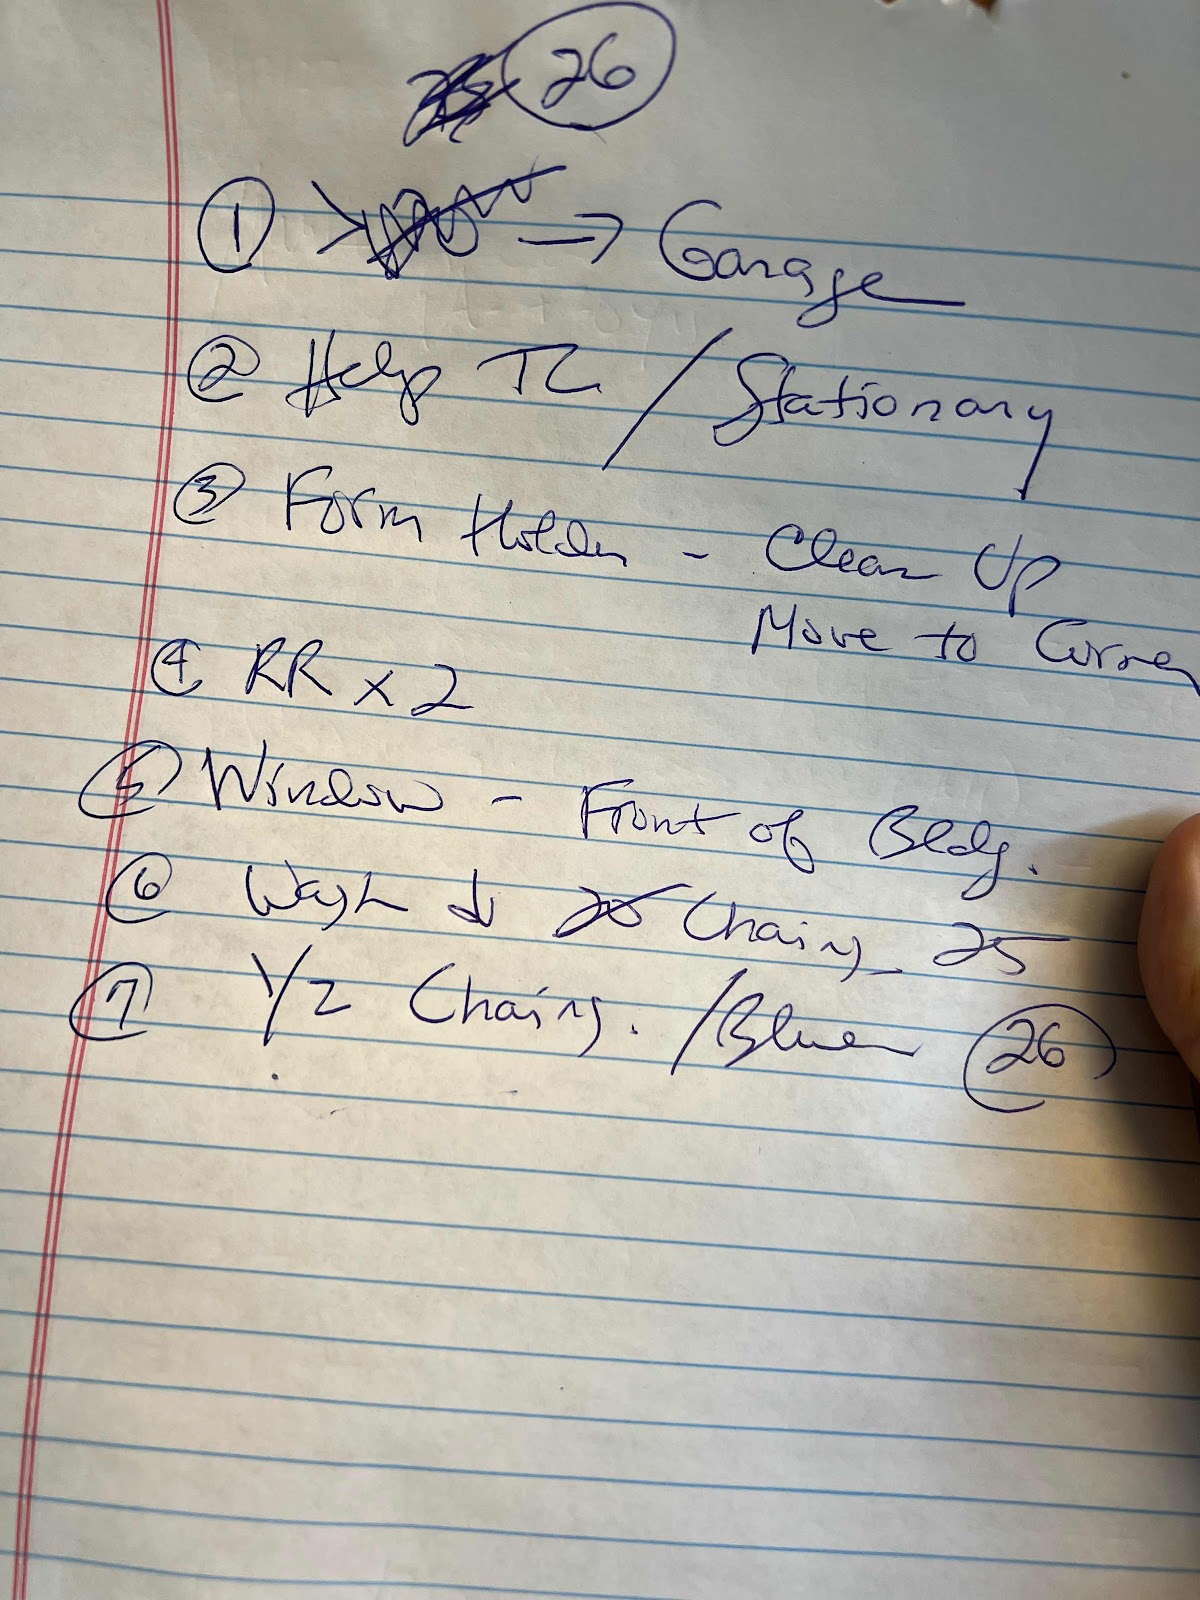 26
① → Garage
② Help TC / Stationary
③ Form Holder - Clean Up
Move to Corner
④ RR x 2
⑤ Window - Front of Bldg.
⑥ Wash ↓ Chairs - 25
⑦ 1/2 Chairs. / Blue 26